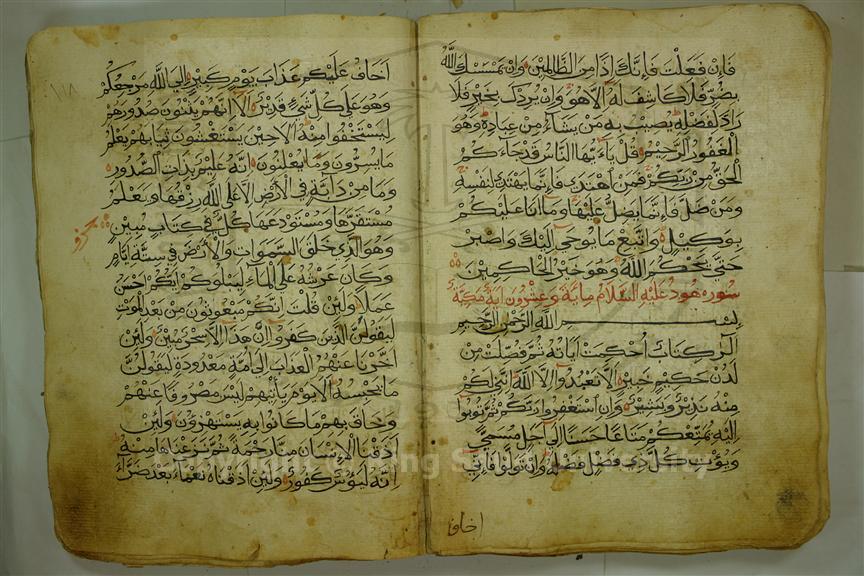 فَإِنْ فَعَلْتَ فَإِنَّكَ إِذًا مِنَ الظَّالِمِينَ وَإِنْ يَمْسَسْكَ اللَّهُ
بِضُرٍّ فَلَا كَاشِفَ لَهُ إِلَّا هُوَ وَإِنْ يُرِدْكَ بِخَيْرٍ فَلَا
رَادَّ لِفَضْلِهِ يُصِيبُ بِهِ مَنْ يَشَاءُ مِنْ عِبَادِهِ وَهُوَ
الْغَفُورُ الرَّحِيمُ قُلْ يَا أَيُّهَا النَّاسُ قَدْ جَاءَكُمُ
الْحَقُّ مِنْ رَبِّكُمْ فَمَنِ اهْتَدَى فَإِنَّمَا يَهْتَدِي لِنَفْسِهِ
وَمَنْ ضَلَّ فَإِنَّمَا يَضِلُّ عَلَيْهَا وَمَا أَنَا عَلَيْكُمْ
بِوَكِيلٍ وَاتَّبِعْ مَا يُوحَى إِلَيْكَ وَاصْبِرْ
حَتَّى يَحْكُمَ اللَّهُ وَهُوَ خَيْرُ الْحَاكِمِينَ
سورة هود عليه السلام ماية وعشرون اية مكية
بسم الله الرحمن الرحيم
الر كِتَابٌ أُحْكِمَتْ آيَاتُهُ ثُمَّ فُصِّلَتْ مِنْ
لَدُنْ حَكِيمٍ خَبِيرٍ أَلَّا تَعْبُدُوا إِلَّا اللَّهَ إِنَّنِي لَكُمْ
مِنْهُ نَذِيرٌ وَبَشِيرٌ وَأَنِ اسْتَغْفِرُوا رَبَّكُمْ ثُمَّ تُوبُوا
إِلَيْهِ يُمَتِّعْكُمْ مَتَاعًا حَسَنًا إِلَى أَجَلٍ مُسَمًّى
وَيُؤْتِ كُلَّ ذِي فَضْلٍ فَضْلَهُ وَإِنْ تَوَلَّوْا فَإِنِّي
اخاف
أَخَافُ عَلَيْكُمْ عَذَابَ يَوْمٍ كَبِيرٍ إِلَى اللَّهِ مَرْجِعُكُمْ
وَهُوَ عَلَى كُلِّ شَيْءٍ قَدِيرٌ أَلَا إِنَّهُمْ يَثْنُونَ صُدُورَهُمْ
لِيَسْتَخْفُوا مِنْهُ أَلَا حِينَ يَسْتَغْشُونَ ثِيَابَهُمْ يَعْلَمُ
مَا يُسِرُّونَ وَمَا يُعْلِنُونَ إِنَّهُ عَلِيمٌ بِذَاتِ الصُّدُورِ
وَمَا مِنْ دَابَّةٍ فِي الْأَرْضِ إِلَّا عَلَى اللَّهِ رِزْقُهَا وَيَعْلَمُ
مُسْتَقَرَّهَا وَمُسْتَوْدَعَهَا كُلٌّ فِي كِتَابٍ مُبِينٍ
وَهُوَ الَّذِي خَلَقَ السَّمَوَاتِ وَالْأَرْضَ فِي سِتَّةِ أَيَّامٍ
وَكَانَ عَرْشُهُ عَلَى الْمَاءِ لِيَبْلُوَكُمْ أَيُّكُمْ أَحْسَنُ
عَمَلًا وَلَئِنْ قُلْتَ إِنَّكُمْ مَبْعُوثُونَ مِنْ بَعْدِ الْمَوْتِ
لَيَقُولَنَّ الَّذِينَ كَفَرُوا إِنْ هَذَا إِلَّا سِحْرٌ مُبِينٌ وَلَئِنْ
أَخَّرْنَا عَنْهُمُ الْعَذَابَ إِلَى أُمَّةٍ مَعْدُودَةٍ لَيَقُولُنَّ
مَا يَحْبِسُهُ أَلَا يَوْمَ يَأْتِيهِمْ لَيْسَ مَصْرُوفًا عَنْهُمْ
وَحَاقَ بِهِمْ مَا كَانُوا بِهِ يَسْتَهْزِئُونَ وَلَئِنْ
أَذَقْنَا الْإِنْسَانَ مِنَّا رَحْمَةً ثُمَّ نَزَعْنَاهَا مِنْهُ
إِنَّهُ لَيَئُوسٌ كَفُورٌ وَلَئِنْ أَذَقْنَاهُ نَعْمَاءَ بَعْدَ ضَرَّاءَ